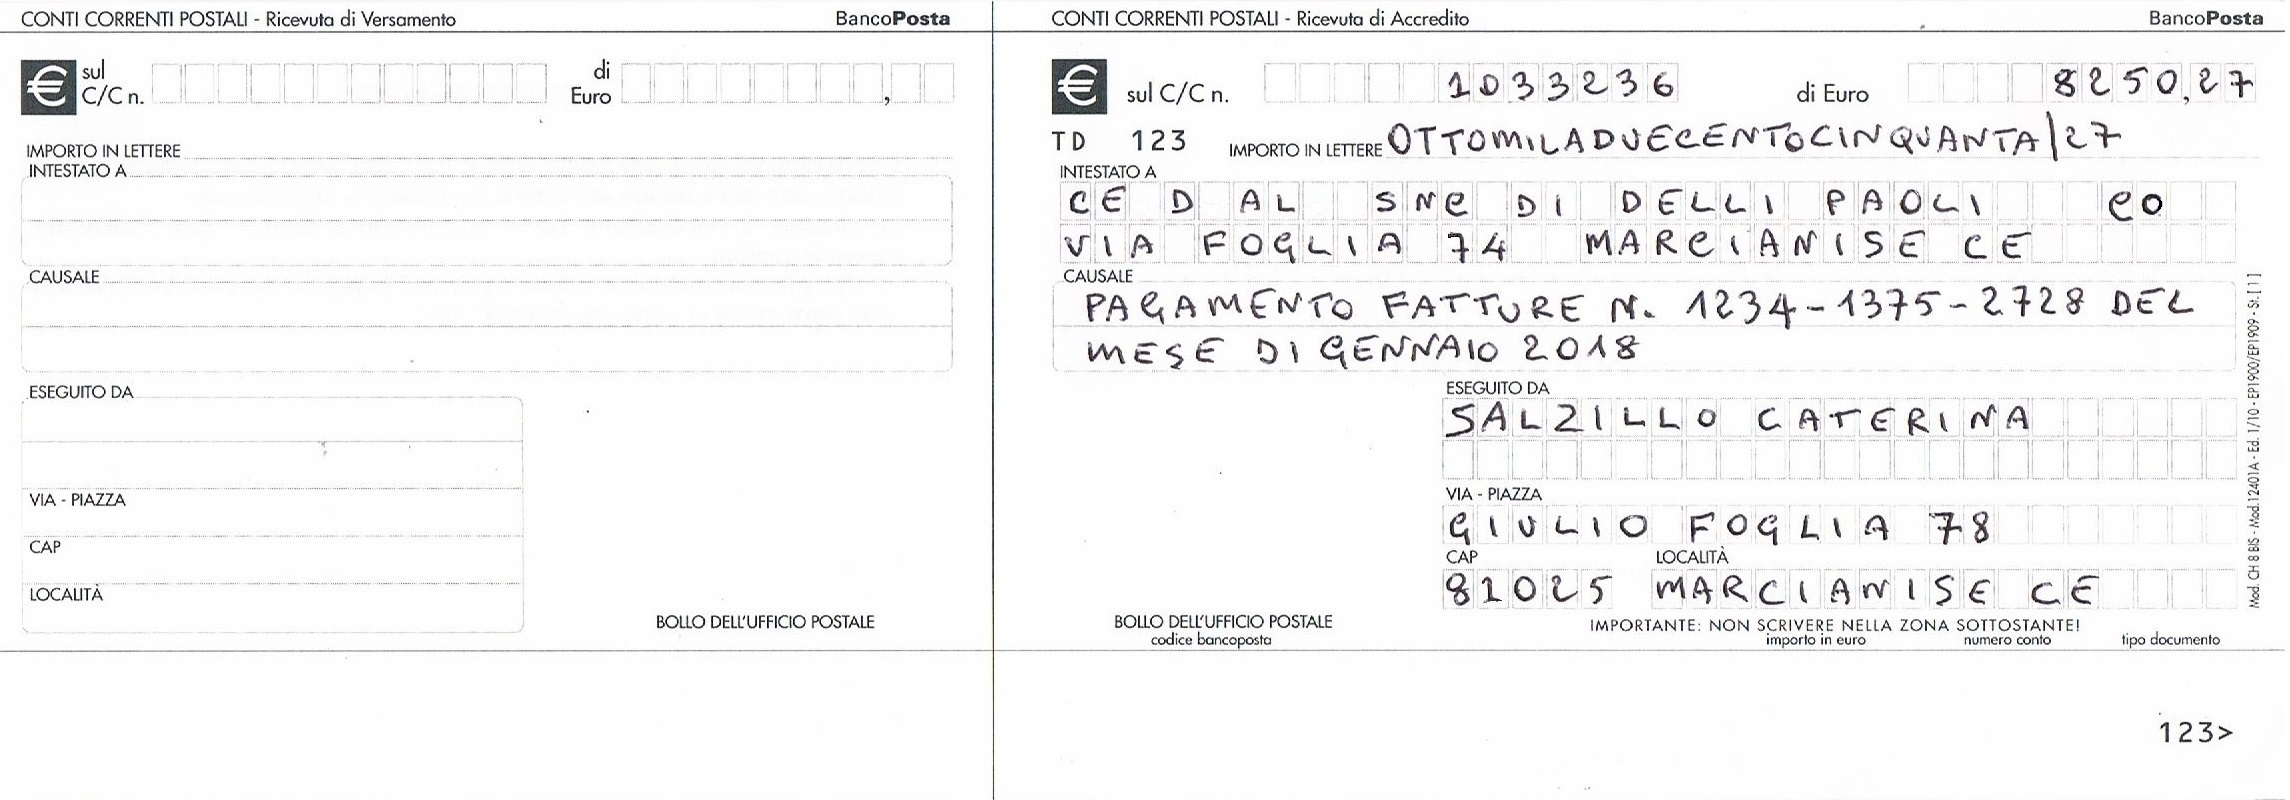 CONTI CORRENTI POSTALI - Ricevuta di Versamento BancoPosta
€ sul C/C n. di Euro ,
IMPORTO IN LETTERE
INTESTATO A
CAUSALE
ESEGUITO DA
VIA - PIAZZA
CAP
LOCALITÀ
BOLLO DELL'UFFICIO POSTALE
CONTI CORRENTI POSTALI - Ricevuta di Accredito BancoPosta
€ sul C/C n. 1033236 di Euro 8250,27
TD 123 IMPORTO IN LETTERE OTTOMILADUECENTOCINQUANTA/27
INTESTATO A
CE D AL SNC DI DELLI PAOLI CO
VIA FOGLIA 74 MARCIANISE CE
CAUSALE
PAGAMENTO FATTURE N. 1234-1375-2728 DEL
MESE DI GENNAIO 2018
ESEGUITO DA
SALZILLO CATERINA
VIA - PIAZZA
GIULIO FOGLIA 78
CAP LOCALITÀ
81025 MARCIANISE CE
BOLLO DELL'UFFICIO POSTALE IMPORTANTE: NON SCRIVERE NELLA ZONA SOTTOSTANTE!
codice bancoposta importo in euro numero conto tipo documento
Mod. CH 8 BIS - Mod. 12401A - Ed. 1/10 - EP1900/EP1909 - St. [1]
123>